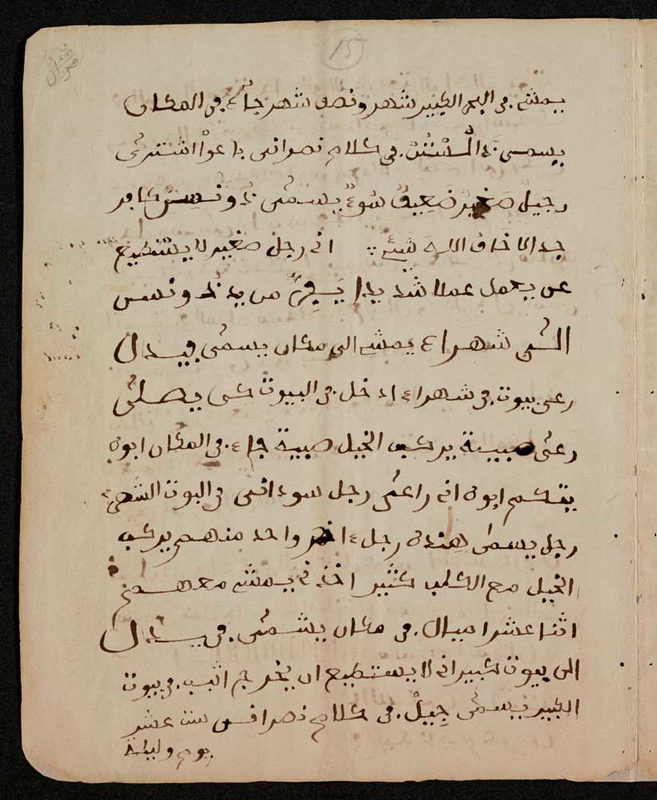 15
يمشي في البحر الكبير شهر ونصف شهر جاء في المكان
يسمى في كلام نصراني باعوا اشترى
رجيل صغير ضعيف سوء يسمى كافر
جدا لا خاف الله شيء ؞ اني رجل صغير لا يستطيع
عن يعمل عملا شديدا يفر من يد
الى شهراء يمشي الى مكان يسمى فيدل
رءى بيوت في شهراء ادخل في البيوت كي يصلى
رءى صبية يركب الخيل صبية جاء في المكان ابوه
يتكلم ابوه اني راءى رجل سوداني في البوت
رجل يسمى هنده رجل ءاخر واحد منهم يركب
الخيل مع الكلب كثير اخذني يمشي معهم
اثنا عشر اميال في مكان يسمى فيدل
الى بيوت كبير اني لا يستطيع ان يخرج اثب في بيوت
الكبير يسمى جيل في كلام نصراني ست عشر
يوم وليلة